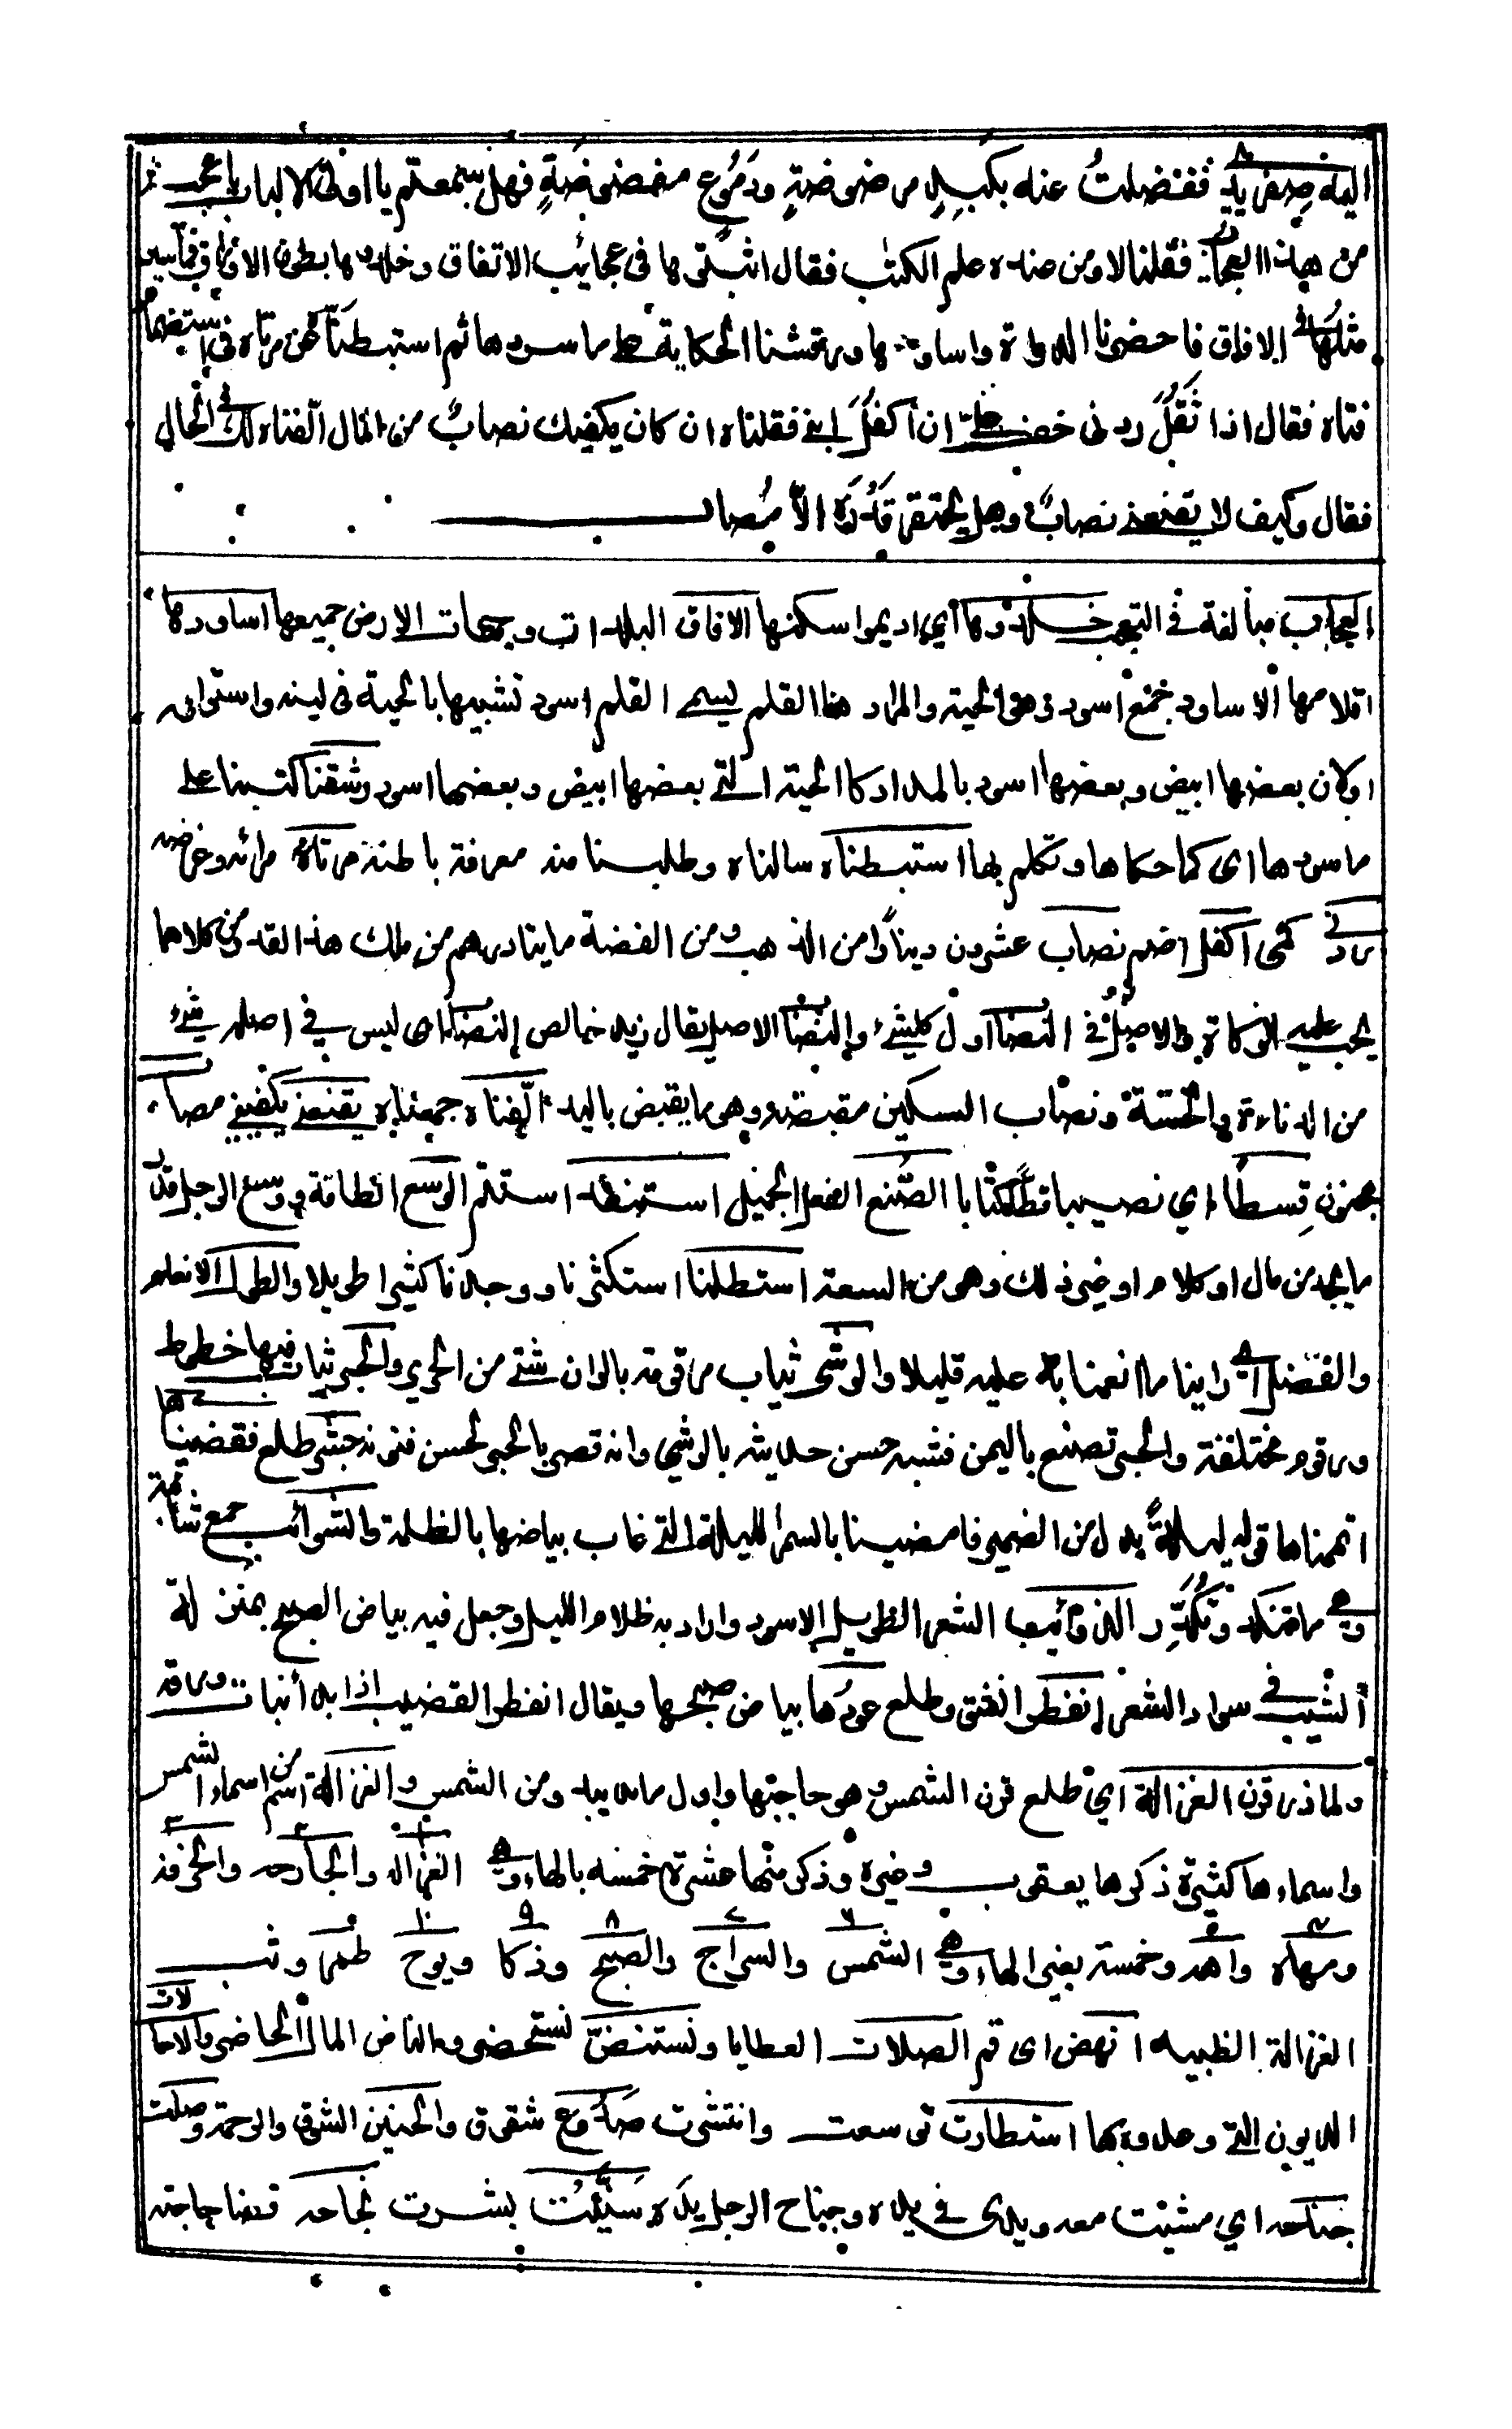 اليه صفر يدي ففصلت عنه بكبد مرضوضة ودموع مفضوضة فهل سمعتم يا اولى الالباب باعجب
من هذا العجاب فقلنا لا ومن عنده علم الكتب فقال اثبتوها فى عجايب الاتفاق وخلدوها بطون الاوراق فما سير
مثلها في الافاق فاحضرنا الدواة واساودها ورقشنا الحكاية على ما سردها ثم استبطناه عن مرتاه فى استضمام
فتاه فقال اذا ثقل ردنى خف علي ان اكفل ابني فقلنا ان كان يكفيك نصاب من المال الفناه لك في الحال
فقال وكيف لا يقنعني نصاب وهل يحتقر قدره الا مصاب
العجاب مبالغة في التعجب خلدوها أي اديموا سكنها الافاق البلدان وجهات الارض جميعها اساودها
اقلامها الاساود جمع اسود وهو الحية والمراد هنا القلم يسمى القلم اسود تشبيها بالحية فى لينه واستوائه
اولان بعضها ابيض وبعضها اسود بالمداد كالحية التي بعضها ابيض وبعضها اسود رشقنا كتبنا على
ما سردها اى كما حكاها وتكلم بها استبطناه سالناه وطلبنا منه معرفة باطنه مرتاه مرائه وغرضه
ردني كمى اكفل اضم نصاب عشرون دينارا من الذهب ومن الفضة مايتا درهم من ملك هذا القدر من كلاهما
يجب عليه الزكاة والاصل في النصاب اول كل شئ والنصاب الاصل يقال زيد خالص النصاب اى ليس في اصله شئ
من الدناءة والخسة ونصاب السكين مقبضه وهو ما يقبض باليد الفناه جمعناه يقنعني يكفيني مصاب
مجنون قسطا اي نصيبا قطا كتابا الصنع الفعل الجميل استنفد استتم الوسع الطاقة ووسع الرجل قدر
ما يجد من مال او كلام او غير ذلك وهو من السعة استطلنا استكثرنا ووجدنا كثيرا طويلا والطول الانعام
والفضل اي راينا ما انعمنا به عليه قليلا والوشى ثياب مرقومة بالوان شتى من الحرير والحبر ثياب فيها خطوط
ورقوم مختلفة والحبر تصنع باليمن فشبه حسن حديثه بالوشي وانه قصر بالحبر لحسن فنونه جشر طلع فقضيناها
اتممناها قوله ليلة بدل من الضمير فامضينا بالسمر الليلة التي غاب بياضها بالظلمة والشوائب جمع شائبة
وهي ما تنكد وتكدر الذوائب الشعر الطويل الاسود واراد به ظلام الليل وجعل فيه بياض الصبح بمنزلة
الشيب في سواد الشعر انفطر انفتق وطلع عودها بياض صبحها ويقال انفطر القضيب اذا بدا نبات ورقه
ولما ذر قرن الغزالة اي طلع قرن الشمس وهو حاجبها واول ما يبد ومن الشمس والغزالة اسم من اسماء الشمس
واسماءها كثيرة ذكرها يعقوب وغيره وذكر منها عشرة خمسه بالهاء وهي الغزاله والجارحه والجونه
ومهاه واهه وخمسة بغير الهاء وهي الشمس والسراج والصبح وذكا ويوح طمر وثب
الغزالة الظبيه انهض اى قم الصلات العطايا ونستنض نستحضر والناض المال الحاضر والاحالات
الديون التي وعدوه بها استطارت توسعت وانتشرت صدوع شقوق والحنين الشوق والرحمة وصلت
جناحه اي مشيت معه ويدى في يده وجناح الرجل يده سنيت بشرت نجاحه قضا حاجته